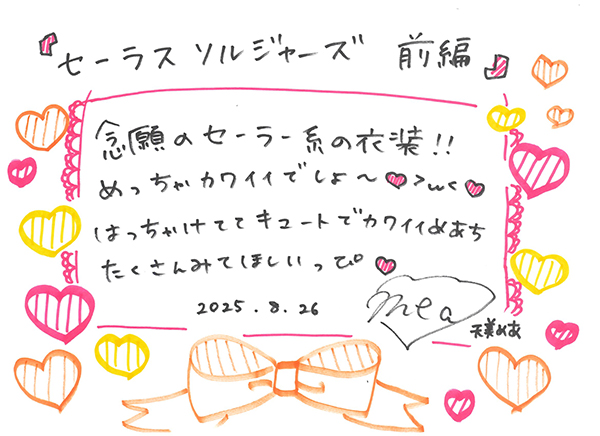 『セーラス ソルジャーズ 前編』
念願のセーラー系の衣装!!
めっちゃカワイイでしょ〜♥>ω<♥
はっちゃけててキュートでカワイイめあち
たくさんみてほしいっぴ♥
2025.8.26
mea
天美めあ